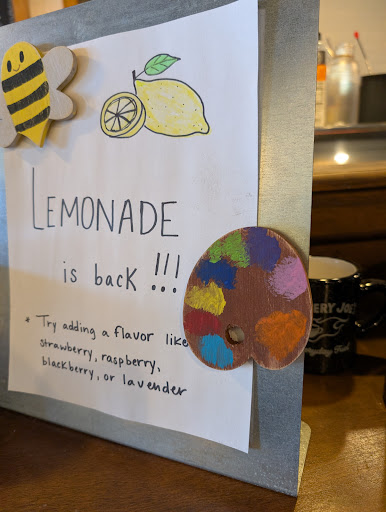 LEMONADE
is back !!!
* Try adding a flavor like
strawberry, raspberry,
blackberry, or lavender
ERY JO